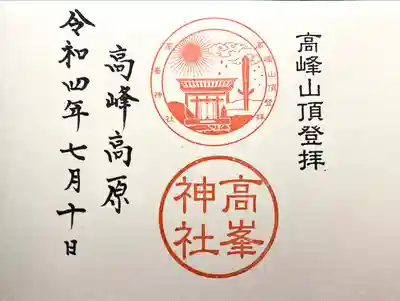 高峰山頂登拝
高峰山頂登拝
高峯神社
高峯
神社
高峰高原
令和四年七月十日